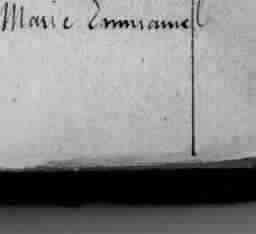 Marie Emmanuel